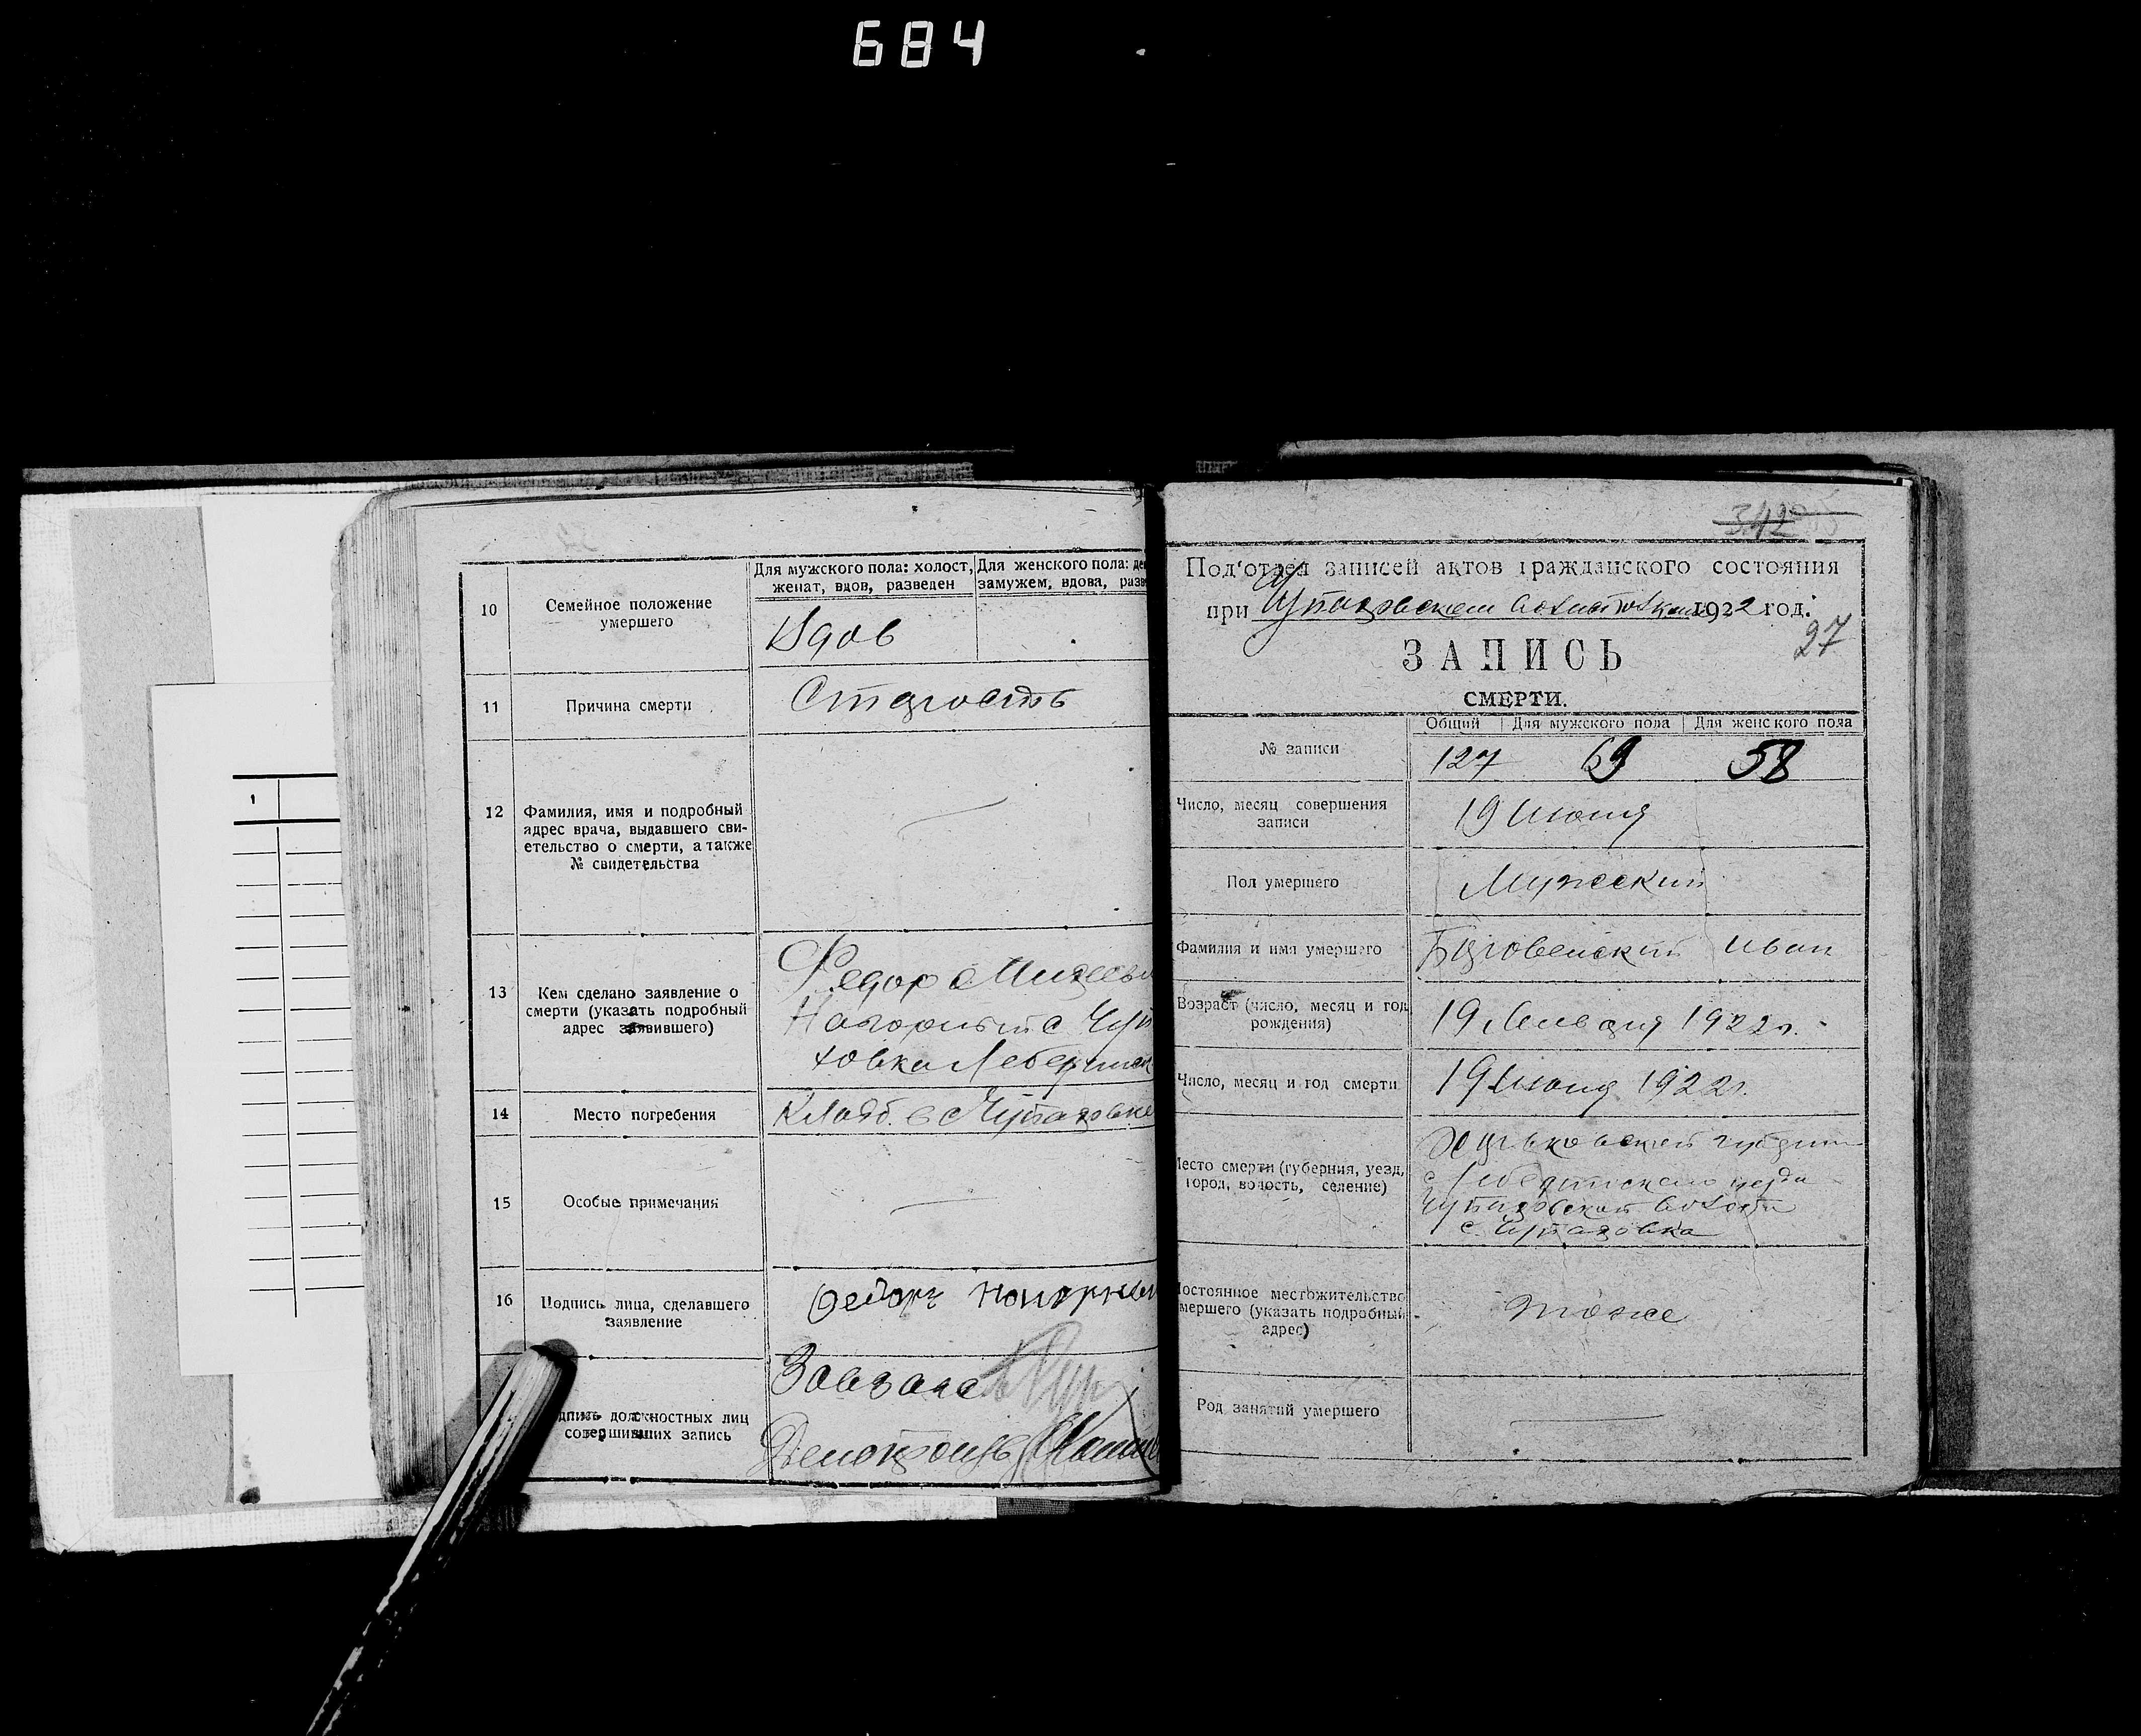 684
10
Семейное положение
умершего
Для мужского пола: холост,
женат, вдов, разведен
Для женского пола: де
замужем, вдова, разв
Вдов
11
Причина смерти
Старость
12
Фамилия, имя и подробный
адрес врача, выдавшего сви-
етельство о смерти, а также
№ свидетельства
13
Кем сделано заявление о
смерти (указать подробный
адрес заявившего)
Федор
Нагорный с Чуп
ховка Лебедин
14
Место погребения
Кладб. в с Чупаховке
15
Особые примечания
16
Подпись лица, сделавшего
заявление
Федоръ Нагорный
дпись должностных лиц
совершивших запись
Завзагс
Делопроизв
1
342
Под'отдел записей актов гражданского состояния
при Чупаховском волисполкоме 1922 год.
27
ЗАПИСЬ
СМЕРТИ.
№ записи
Общий
Для мужского пола
Для женского пола
127 69 58
Число, месяц совершения
записи
19 Июня
Пол умершего
Мужский
Фамилия и имя умершего
Барвенский Иван
Возраст (число, месяц и год
рождения)
19 Января 1922 г.
Число, месяц и год смерти
19 Июня 1922 г.
Место смерти (губерния, уезд,
город, волость, селение)
Харьковской губерни
Лебединского уезда
Чупаховской волости
с. Чупаховка
Постоянное местожительство
умершего (указать подробный
адрес)
тоже
Род занятий умершего